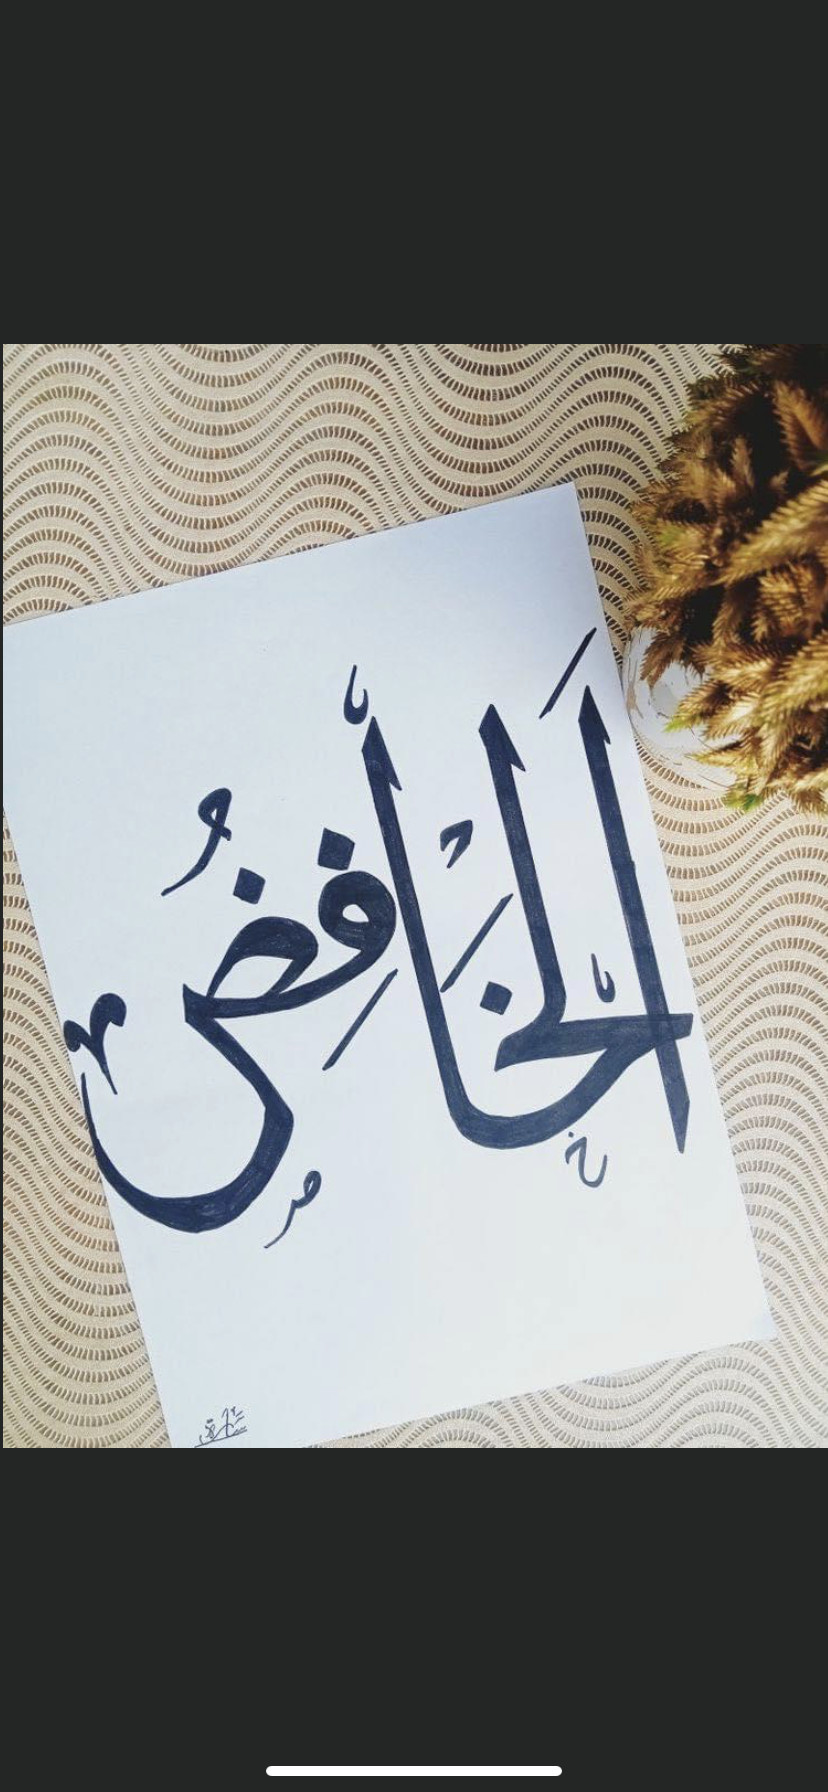 اَلْخَافِضُ